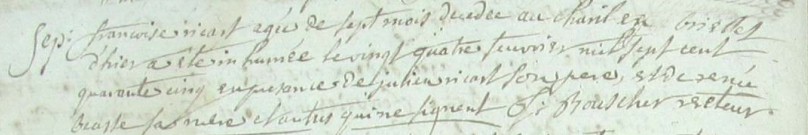 Sep: francoise ricart agée de sept mois decedee au chari en
d'hier a été inhumée le vingt quatre feuvrier mil sept cent
quarante cinq en presance de julien ricart son pere, et de renée
sa mere et autres qui ne signent J: Bouscher recteur